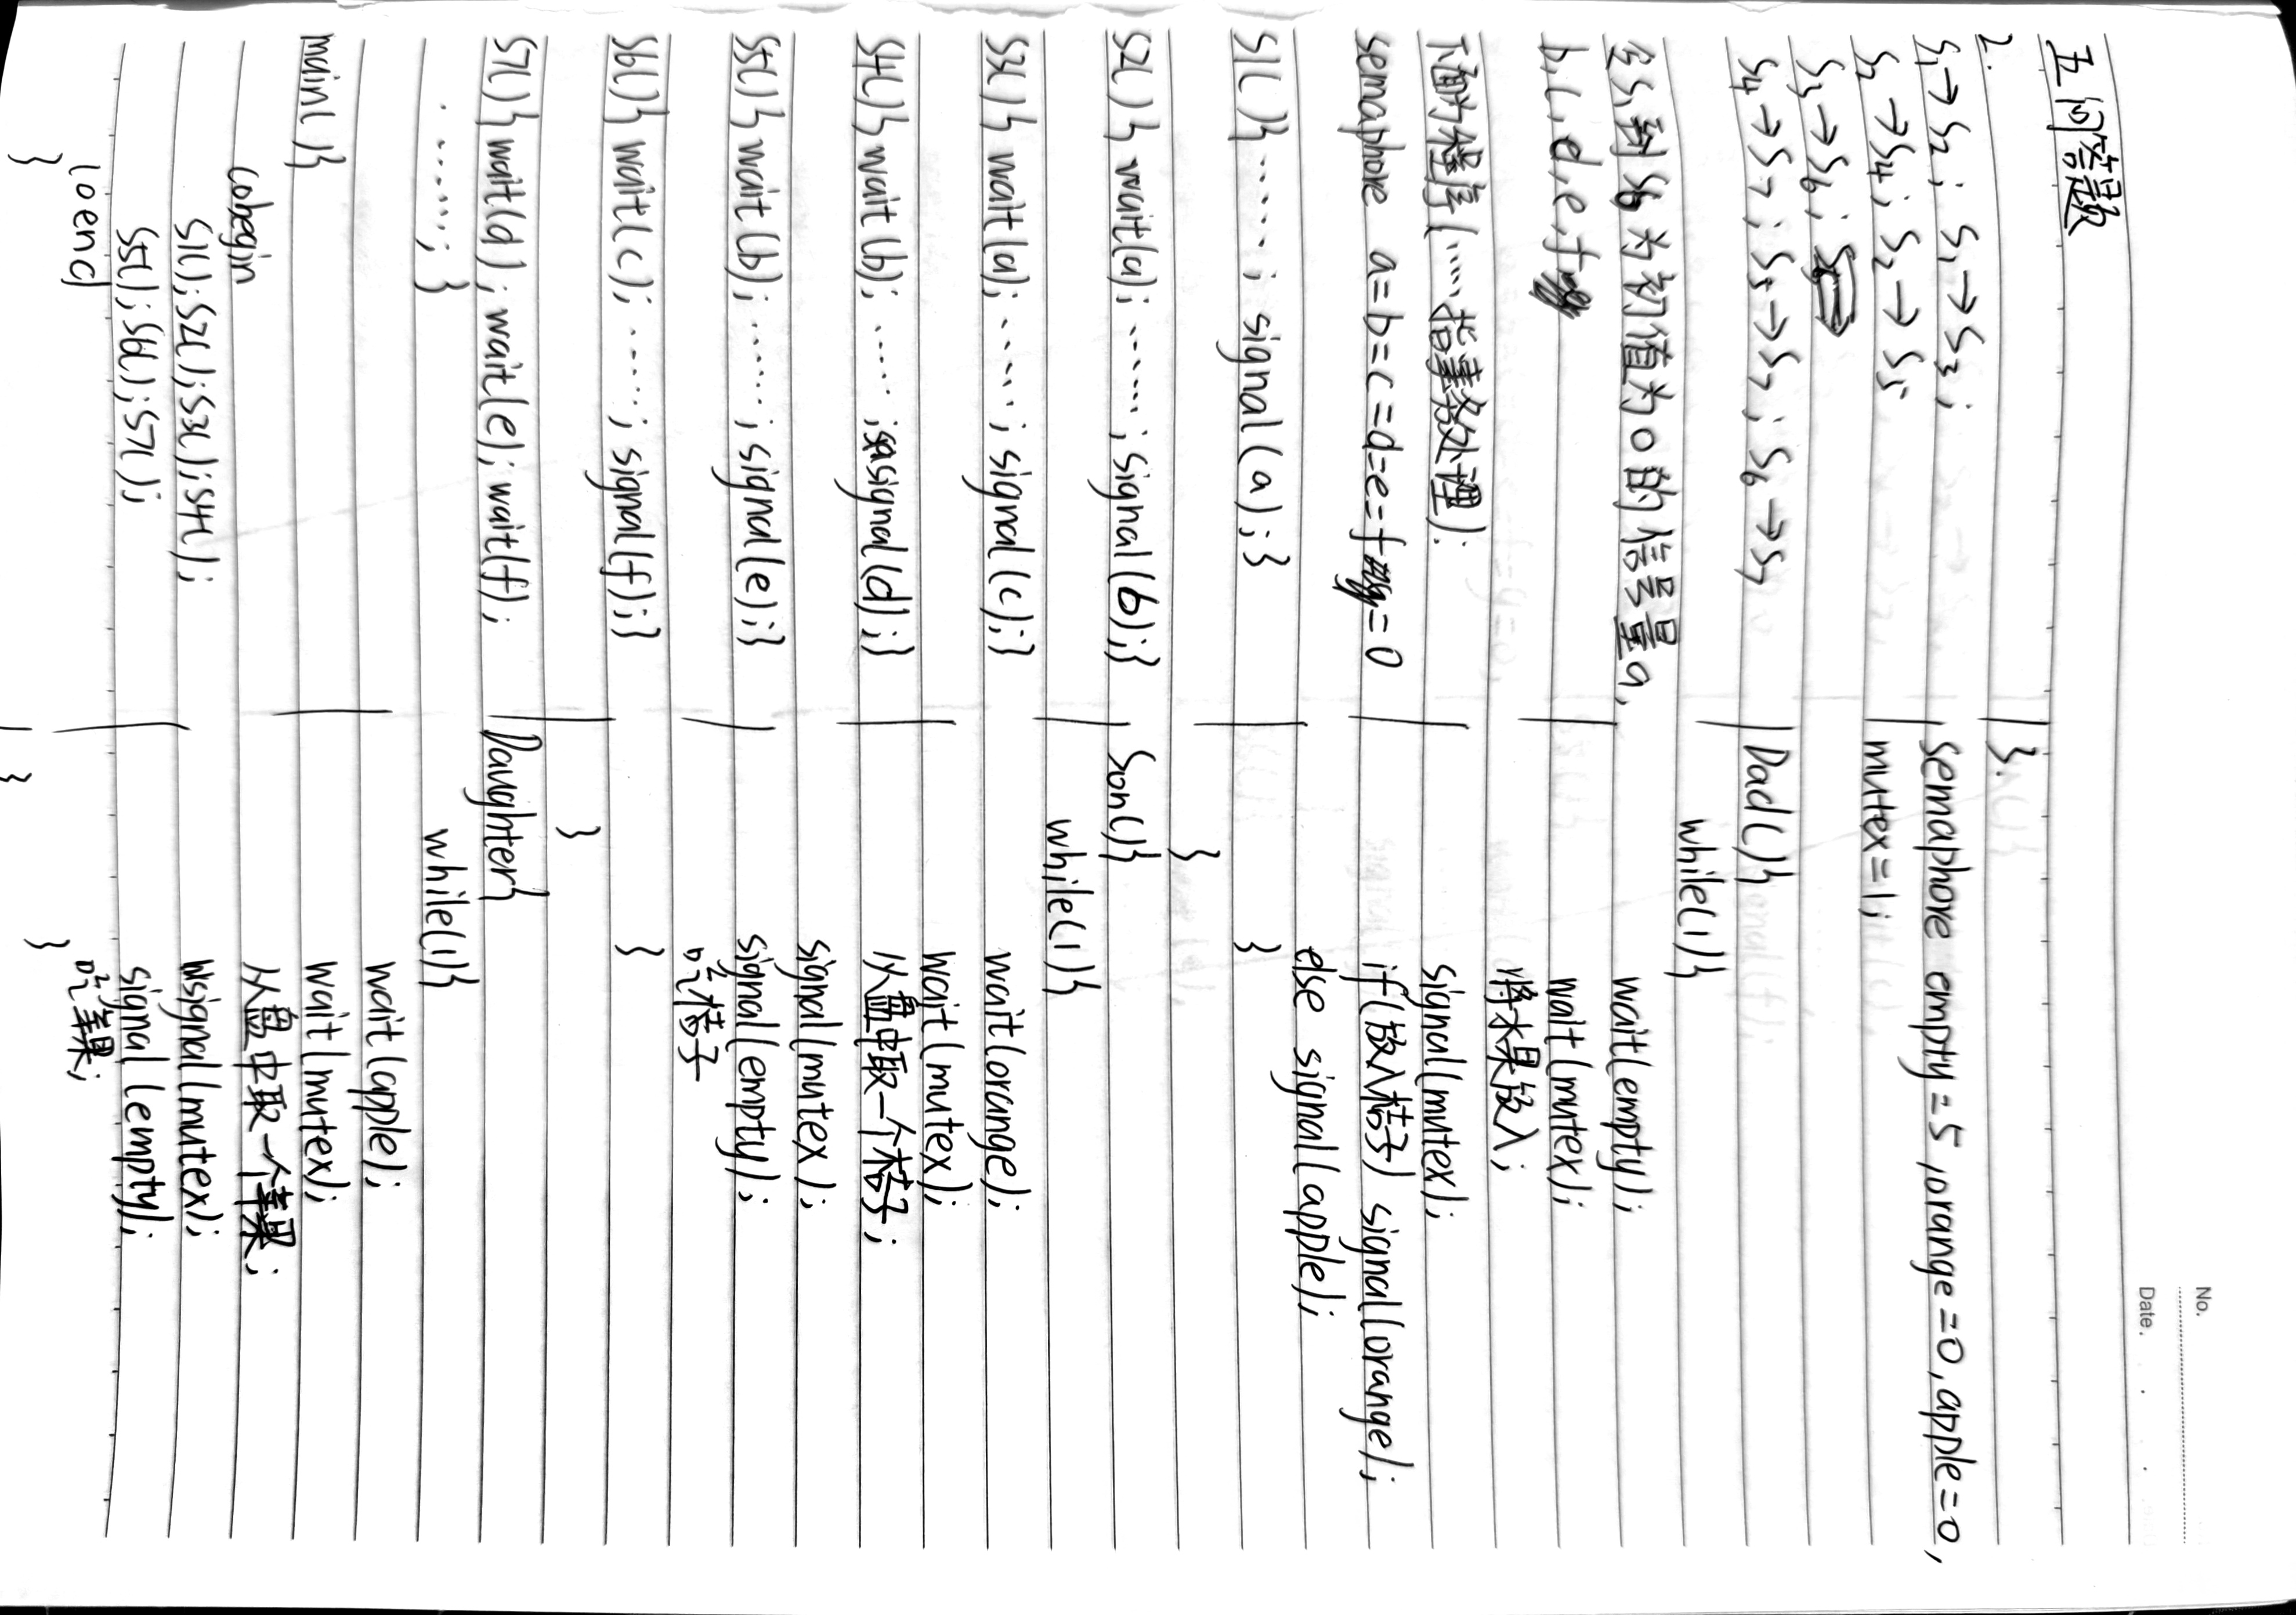 No.
Date.
五 问答题
2.
S₁→S₂; S₁→S₃;
S₂→S₄; S₂→S₅
S₃→S₆;
S₄→S₇; S₅→S₇; S₆→S₇
令S₁到S6为初值为0的信号量a,
b,c,d,e,f
下面为程序(……指事务处理):
semaphore a=b=c=d=e=f=0
S1(){……; signal(a);}
S2(){wait(a); ……; signal(b);}
S3(){wait(a); ……; signal(c);}
S4(){wait(b); ……; signal(d);}
S5(){wait(b); ……; signal(e);}
S6(){wait(c); ……; signal(f);}
S7(){wait(d); wait(e); wait(f);
……; }
main(){
cobegin
S1();S2();S3();S4();
S5();S6();S7();
coend
}
3.
semaphore empty=5,orange=0,apple=0,
mutex=1;
Dad(){
while(1){
wait(empty);
wait(mutex);
将水果放入;
signal(mutex);
if(放入桔子) signal(orange);
else signal(apple);
}
}
Son(){
while(1){
wait(orange);
wait(mutex);
从盘中取一个桔子;
signal(mutex);
signal(empty);
吃桔子
}
}
Daughter{
while(1){
wait(apple);
wait(mutex);
从盘中取一个苹果;
signal(mutex);
signal(empty);
吃苹果;
}
}